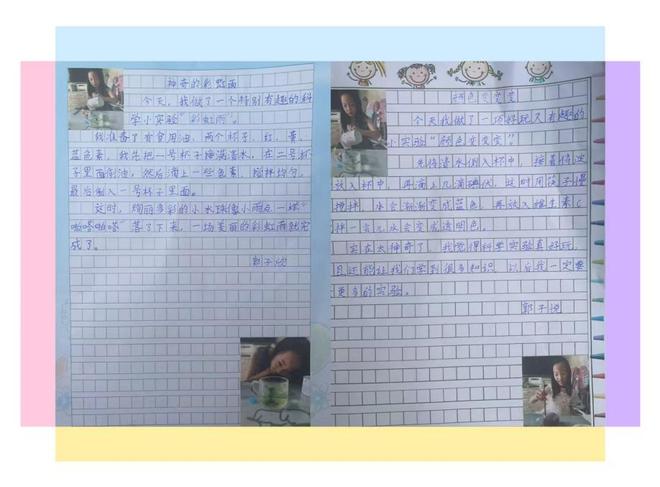 神奇的彩虹雨
今天，我做了一个特别有趣的科
学小实验“彩虹雨”。
我准备了有食用油，两个杯子，红、黄、
蓝色素，我先把一号杯子接满清水，在二号杯
子里面倒油，然后滴上一些色素，搅拌均匀，
最后倒入一号杯子里面。
这时，绚丽多彩的小水珠像小雨点一样“
啪嗒啪嗒”落了下来，一场美丽的彩虹雨就完
成了。
郭子悦
颜色变变变
今天我做了一项好玩又有趣的
小实验“颜色变变变”。
先将清水倒入杯中，接着将淀
放入杯中，再滴上几滴碘伏，这时用筷子慢
搅拌，水会渐渐变成蓝色，再放入维生素C
拌一会儿水会变成透明色。
实在太神奇了，我觉得科学实验真好玩，
且还能让我们学到很多知识，以后我一定要
更多的实验。
郭子悦